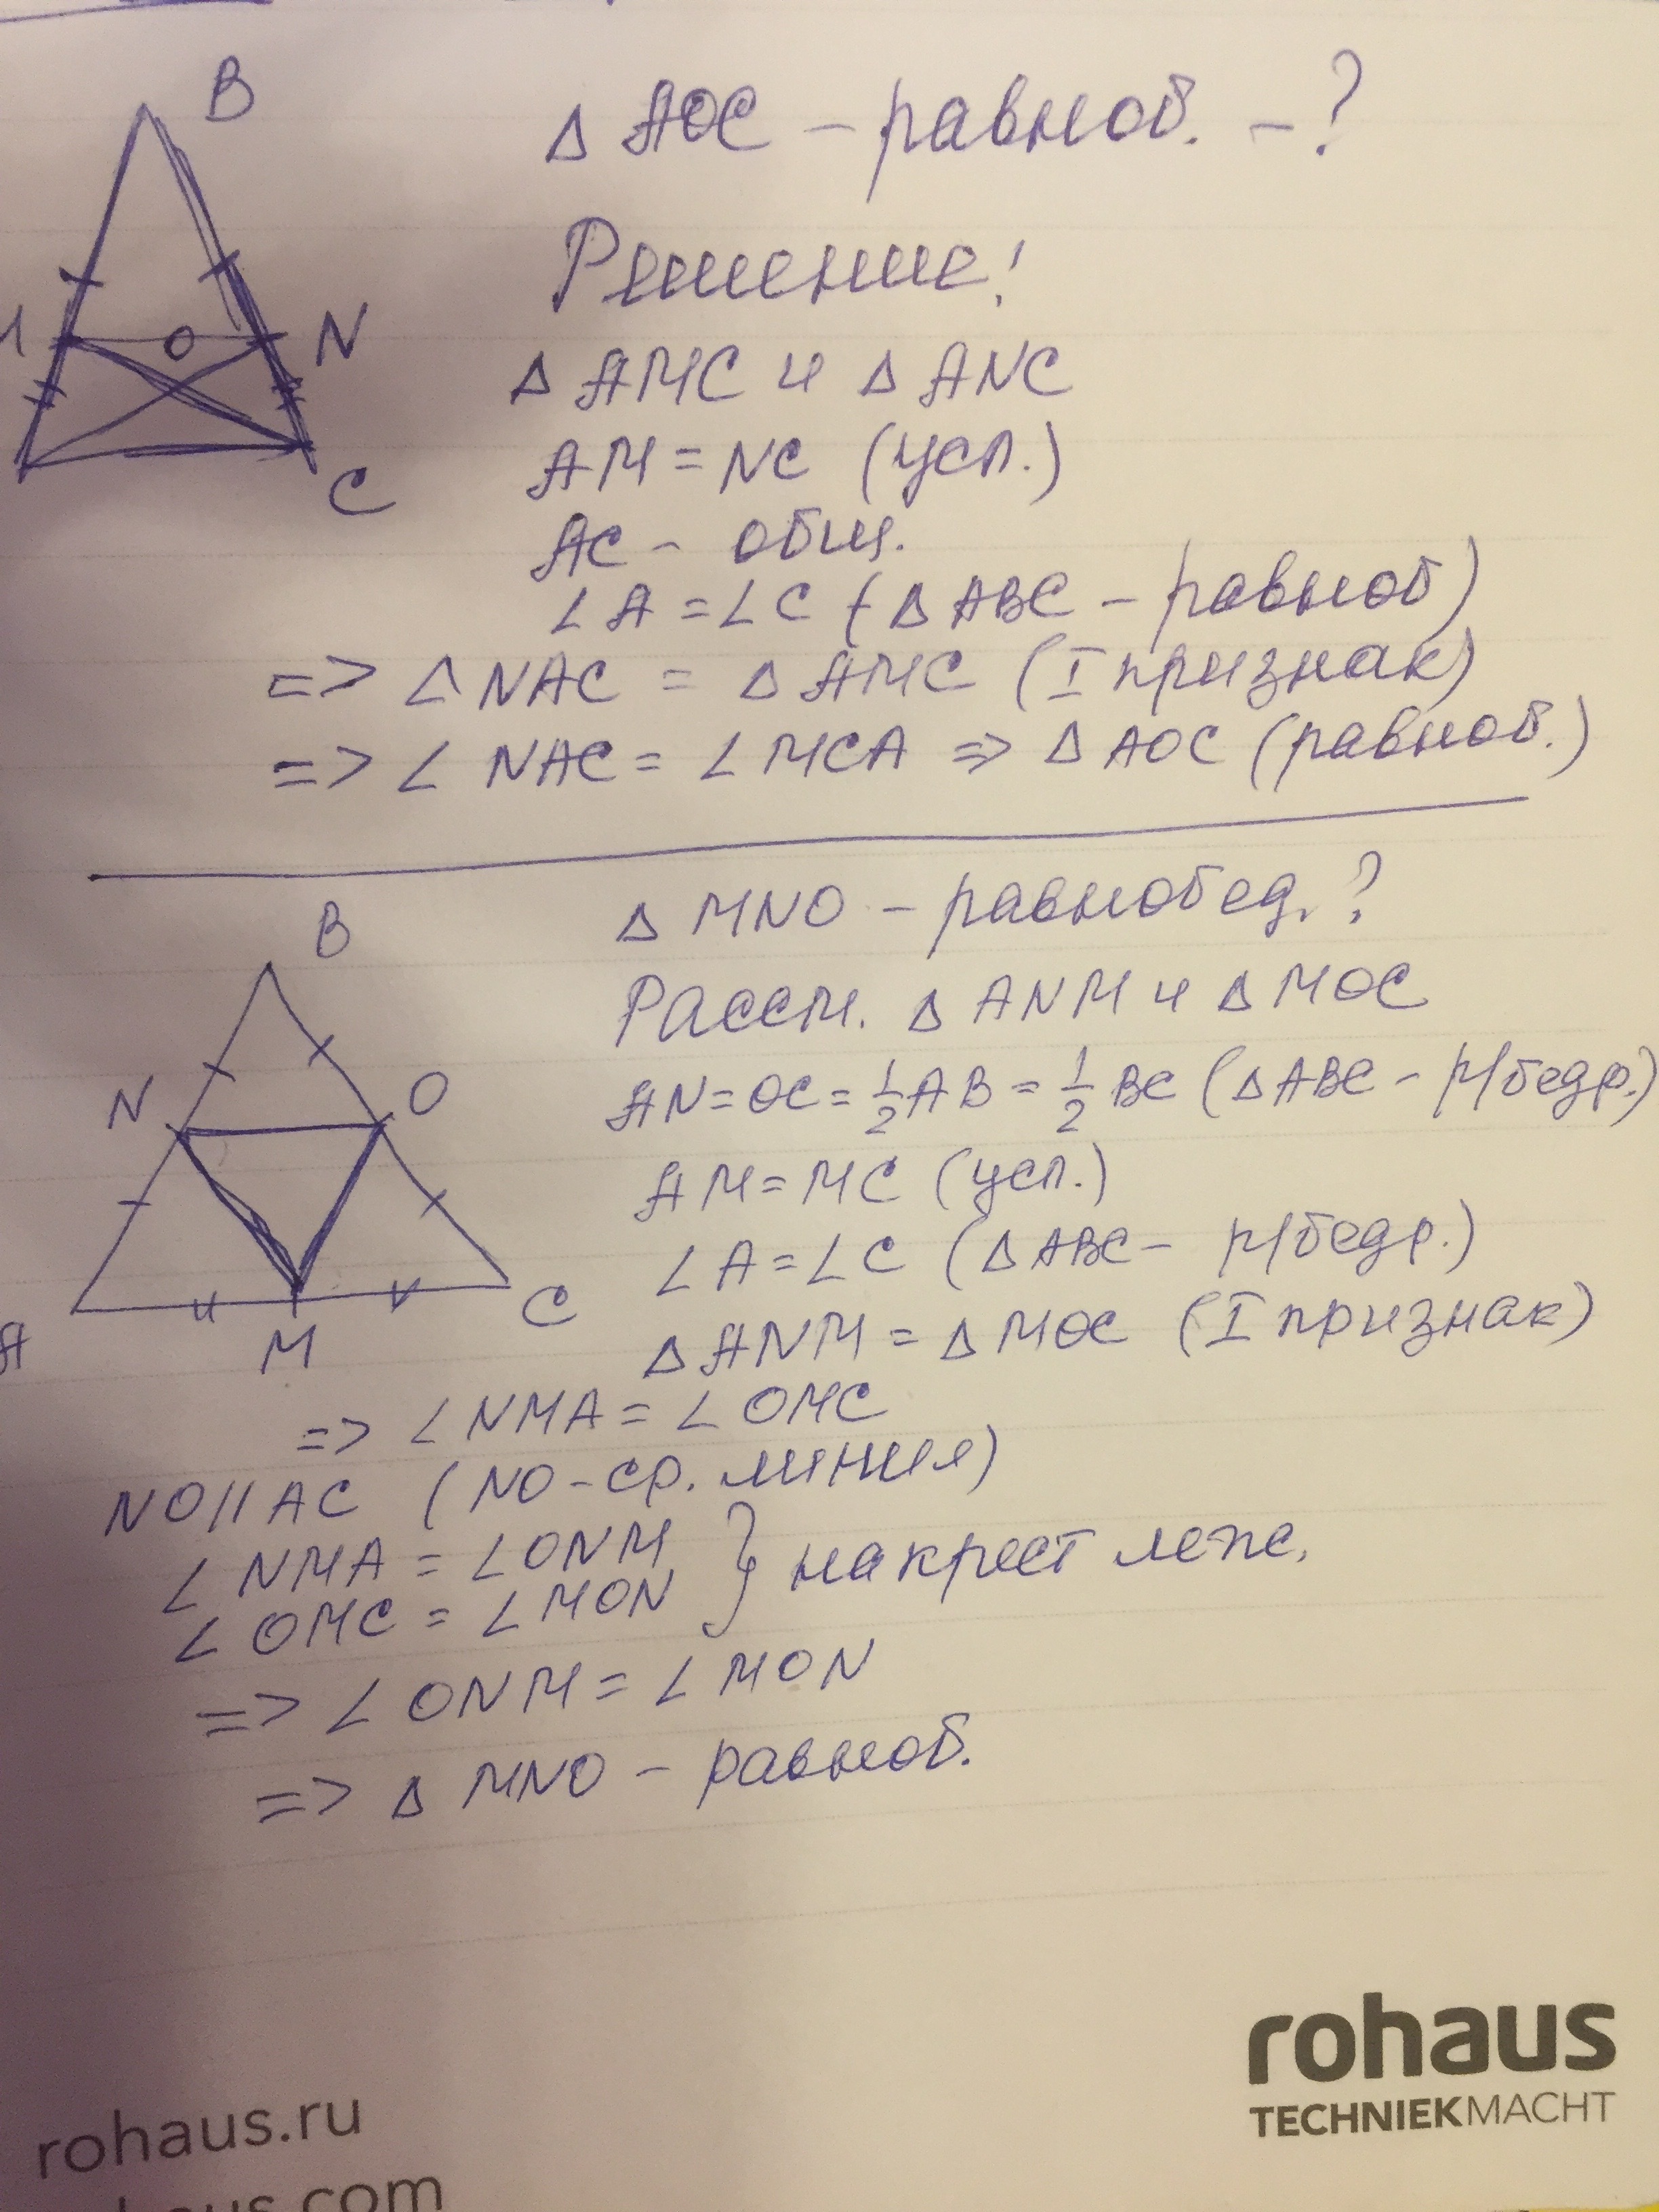 B
Δ AOC – равноб. – ?
Решение!
O
N
C
Δ AMC и Δ ANC
AM = NC (усл.)
AC – общ.
∠A = ∠C (Δ ABC – равноб)
=> Δ NAC = Δ AMC (I признак)
=> ∠ NAC = ∠ MCA => Δ AOC (равноб.)
B
N
O
A
M
C
Δ MNO – равнобед. ?
Рассм. Δ ANM и Δ MOC
AN = OC = 1/2 AB = 1/2 BC (Δ ABC – р/бедр.)
AM = MC (усл.)
∠A = ∠C (Δ ABC – р/бедр.)
Δ ANM = Δ MOC (I признак)
=> ∠ NMA = ∠ OMC
NO // AC (NO – ср. линия)
∠ NMA = ∠ ONM } накрест леж.
∠ OMC = ∠ MON
=> ∠ ONM = ∠ MON
=> Δ MNO – равноб.
rohaus
TECHNIEKMACHT
rohaus.ru